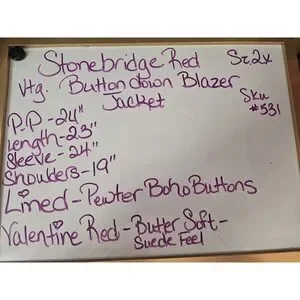 Stonebridge Red Sz. 2x
Vtg. Button down Blazer
Jacket Sku #531
P-P-24"
Length-23"
Sleeve-24"
Shoulders-19"
Lined-Pewter Boho Buttons
Valentine Red-Butter Soft-
Suede Feel